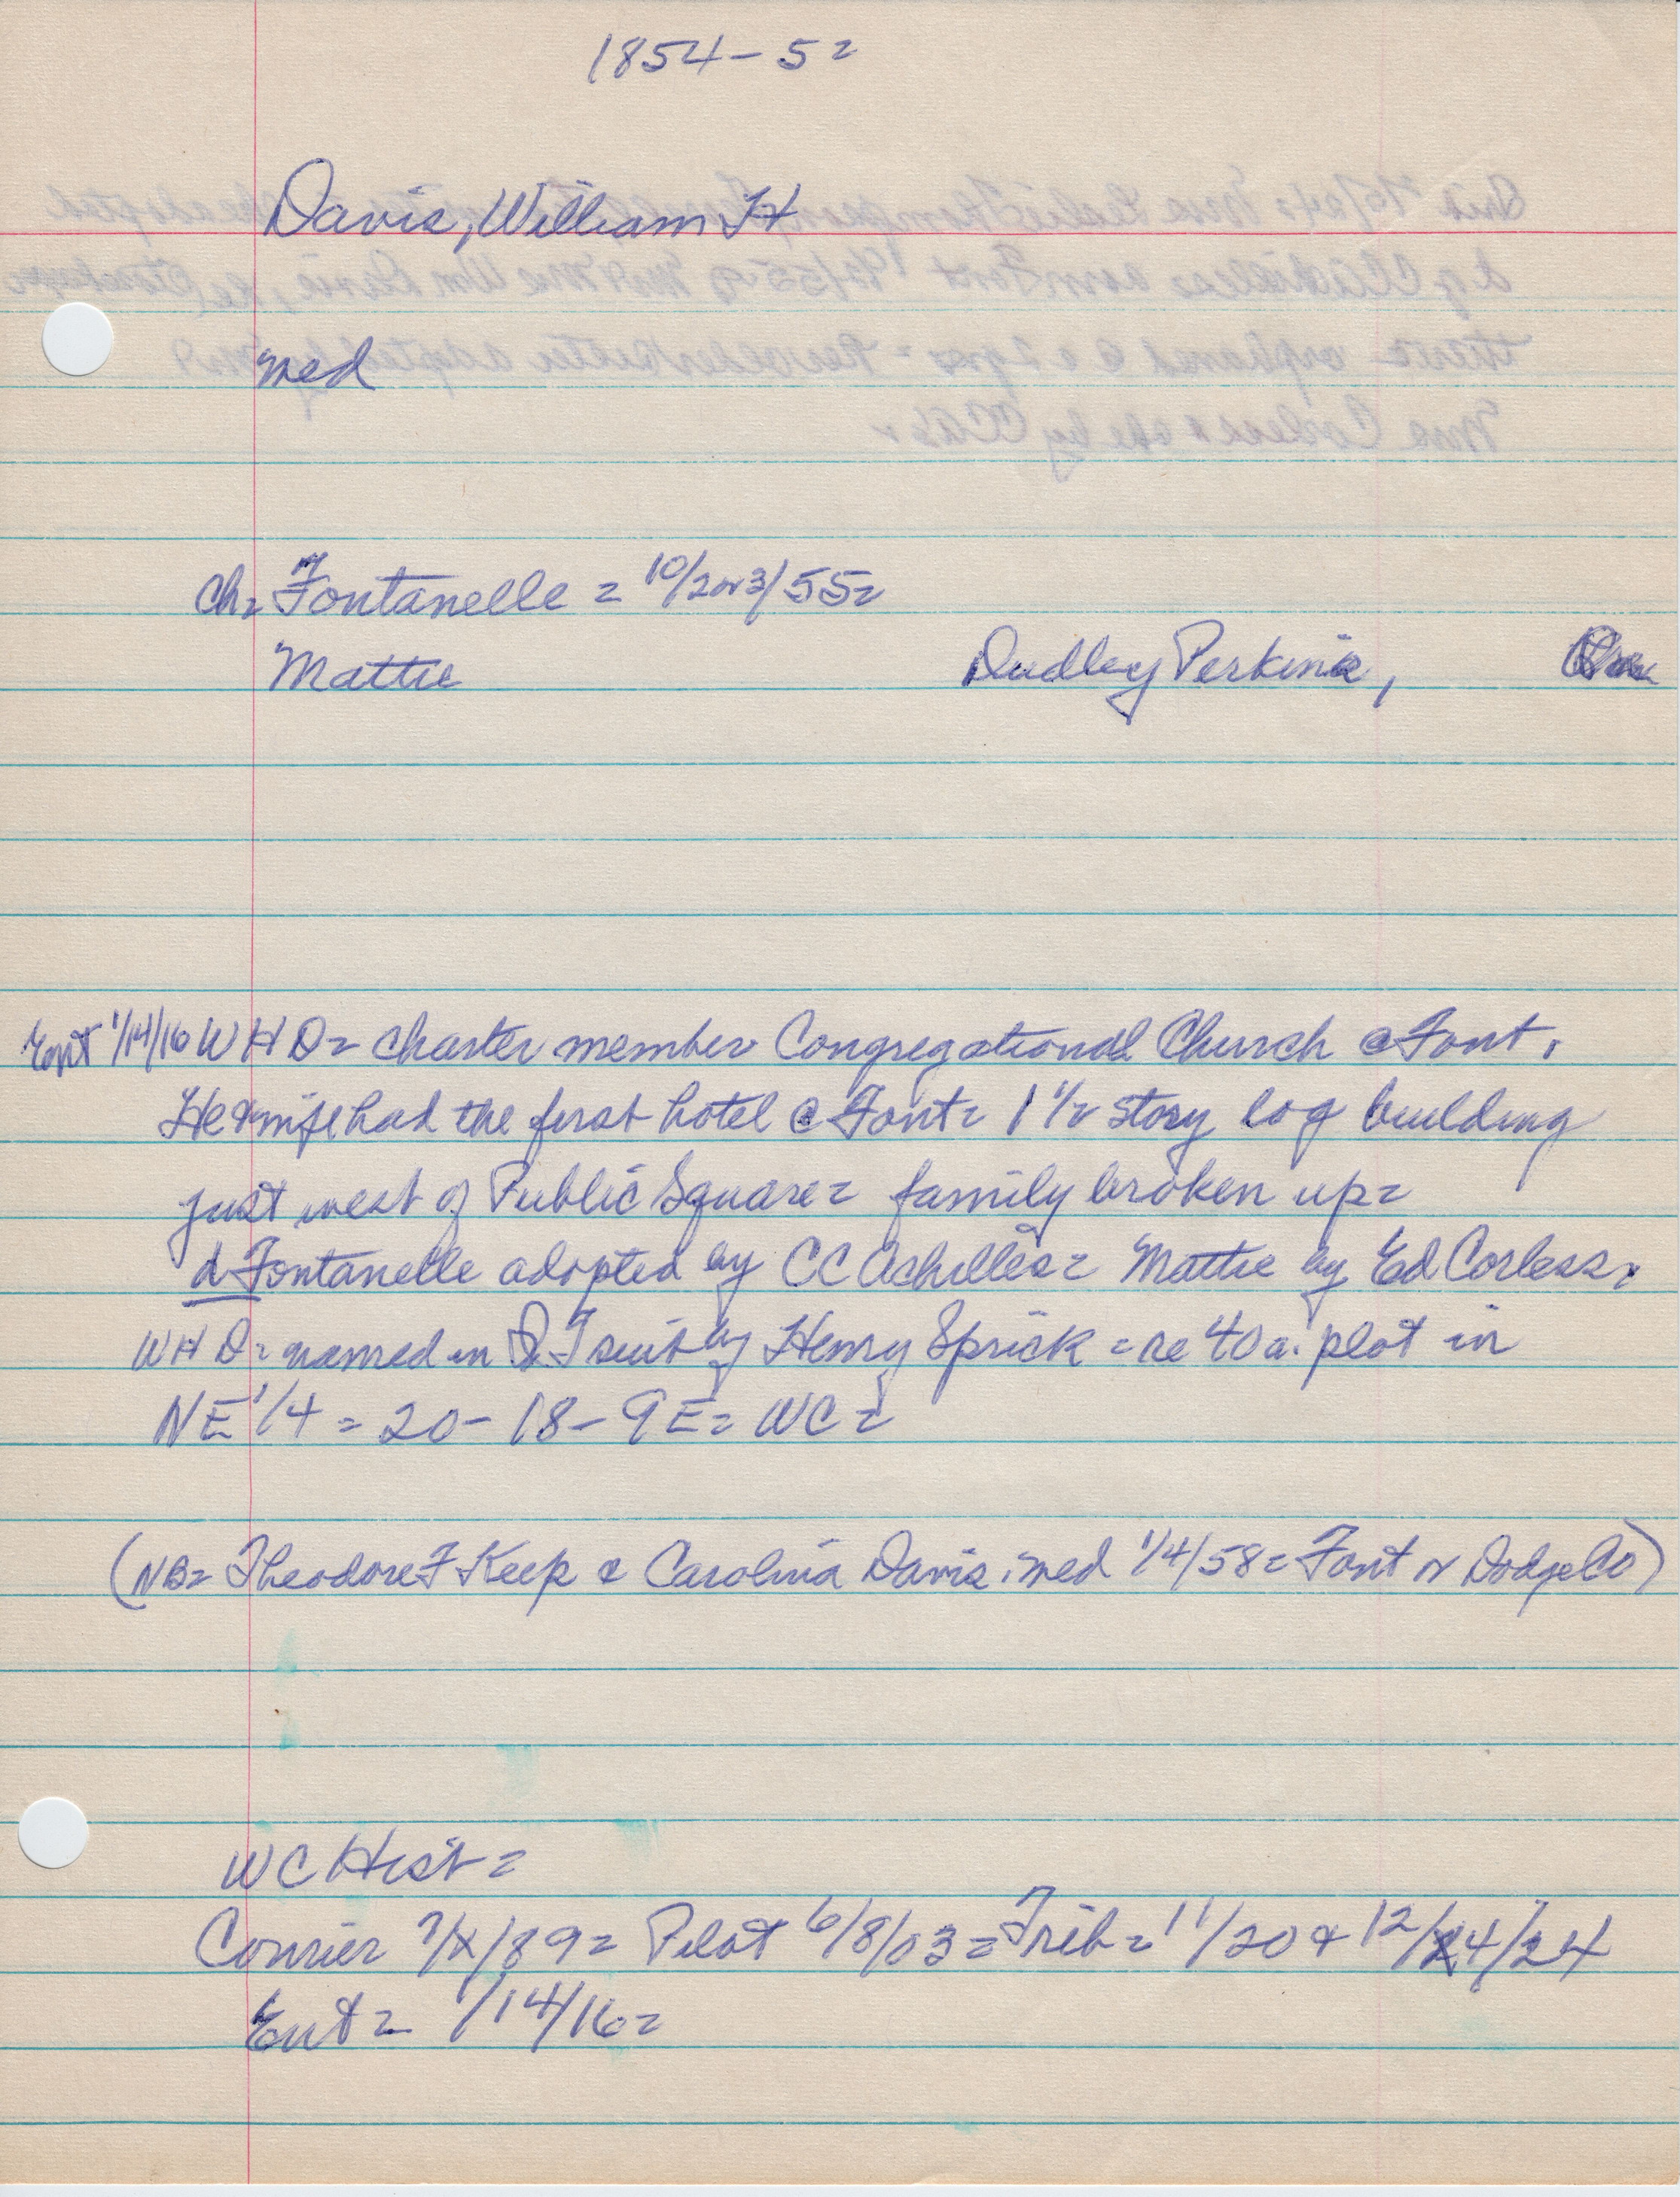 1854-5=
Davis, William H
med
Ch= Fontanelle = 10/2 or 3/55=
Mattie Dudley Perkins,
Ent 1/14/16 W H D= charter member Congregational Church @ Font.
He & wife had the first hotel @ Font= 1 1/2 story log building
just west of Public Square= family broken up=
d Fontanelle adopted by CC Achilles= Mattie by Ed Corless.
W H D= named in Q T suit by Henry Sprick = re 40 a. plot in
NE 1/4 = 20-18-9E= WC=
(NB= Theodore F Keep & Carolina Davis. med 1/4/58= Font or Dodge Co)
WC Hist=
Courier 7/ /89= Pilot 6/8/03= Trib= 11/20 & 12/ 4/24
Ent= 1/14/16=